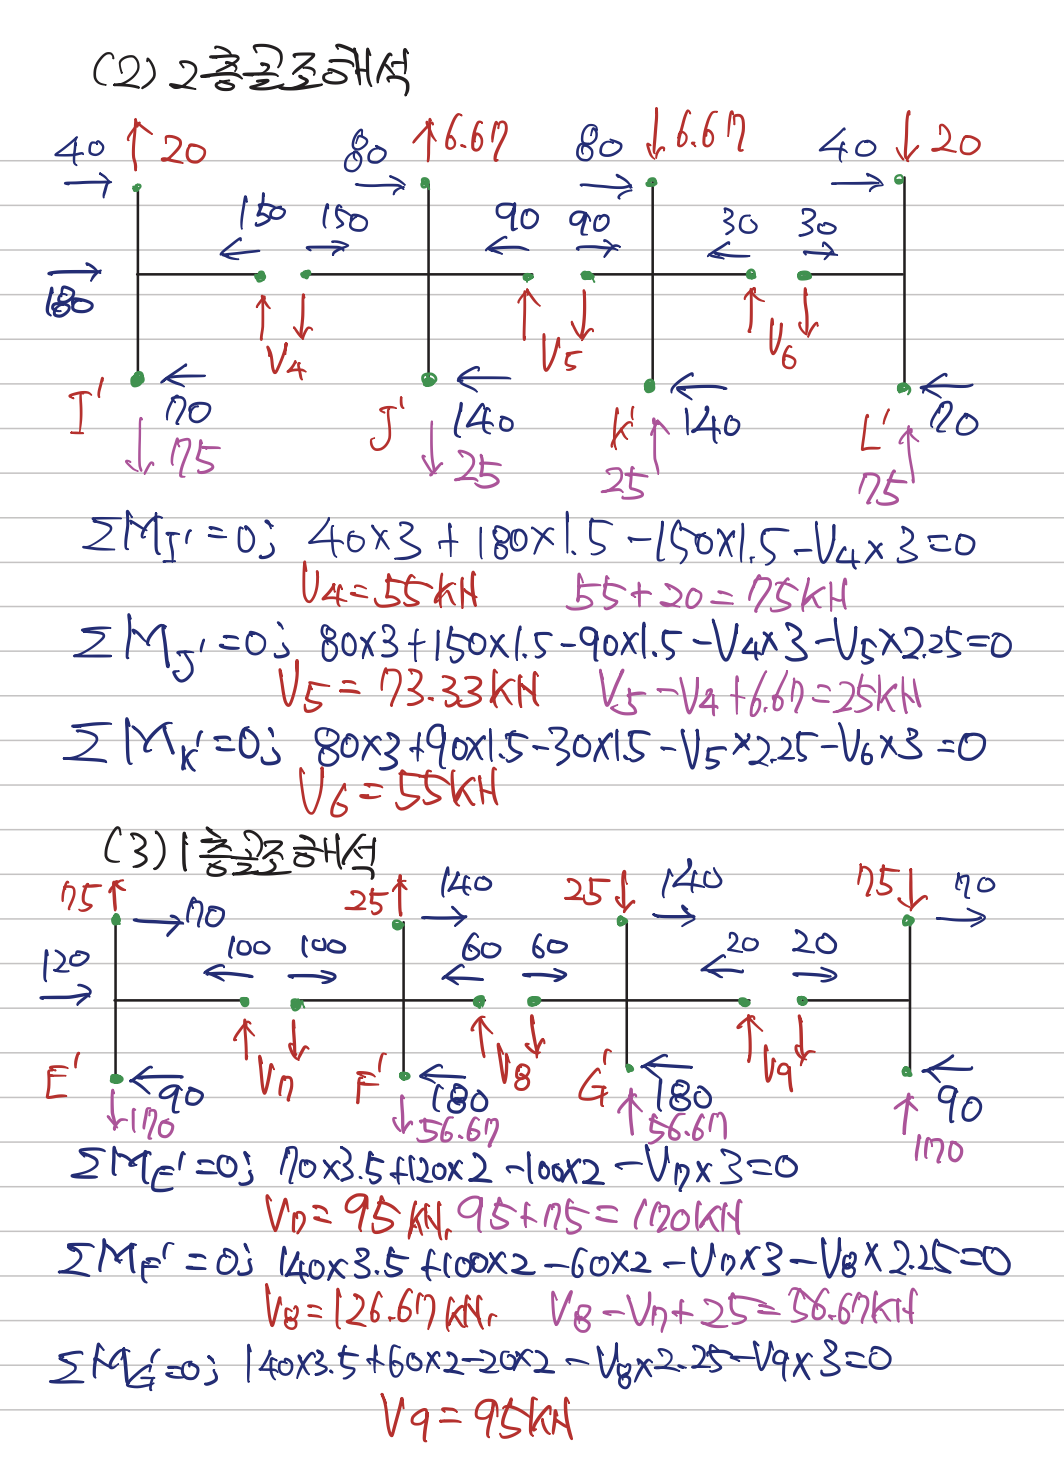 (2) 2층골조해석
40 20 80 6.67 80 6.67 40 20
150 150 90 90 30 30
180
V4 V5 V6
I' 70 J' 140 K' 140 L' 70
75 25 25 75
ΣM_I' = 0; 40×3+180×1.5-150×1.5-V4×3=0
V4=55KN 55+20=75KN
ΣM_J' = 0; 80×3+150×1.5-90×1.5-V4×3-V5×2.25=0
V5=73.33KN V5-V4+6.67=25KN
ΣM_K' = 0; 80×3+90×1.5-30×1.5-V5×2.25-V6×3=0
V6=55KN
(3) 1층골조해석
75 70 25 140 25 140 75 70
120 100 100 60 60 20 20
E' V7 F' V8 G' V9
90 180 180 90
170 56.67 56.67 170
ΣM_E' = 0; 70×3.5+120×2-100×2-V7×3=0
V7=95KN. 95+75=170KN
ΣM_F' = 0; 140×3.5+100×2-60×2-V7×3-V8×2.25=0
V8=126.67KN. V8-V7+25=56.67KN
ΣM_G' = 0; 140×3.5+60×2-20×2-V8×2.25-V9×3=0
V9=95KN